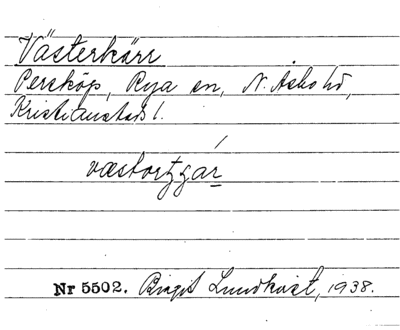 Västerkärr
Persköp, Rya sn, N. Åsbo hd,
Kristianstads l.
Nr 5502. Birgit Lundkvist, 1938.